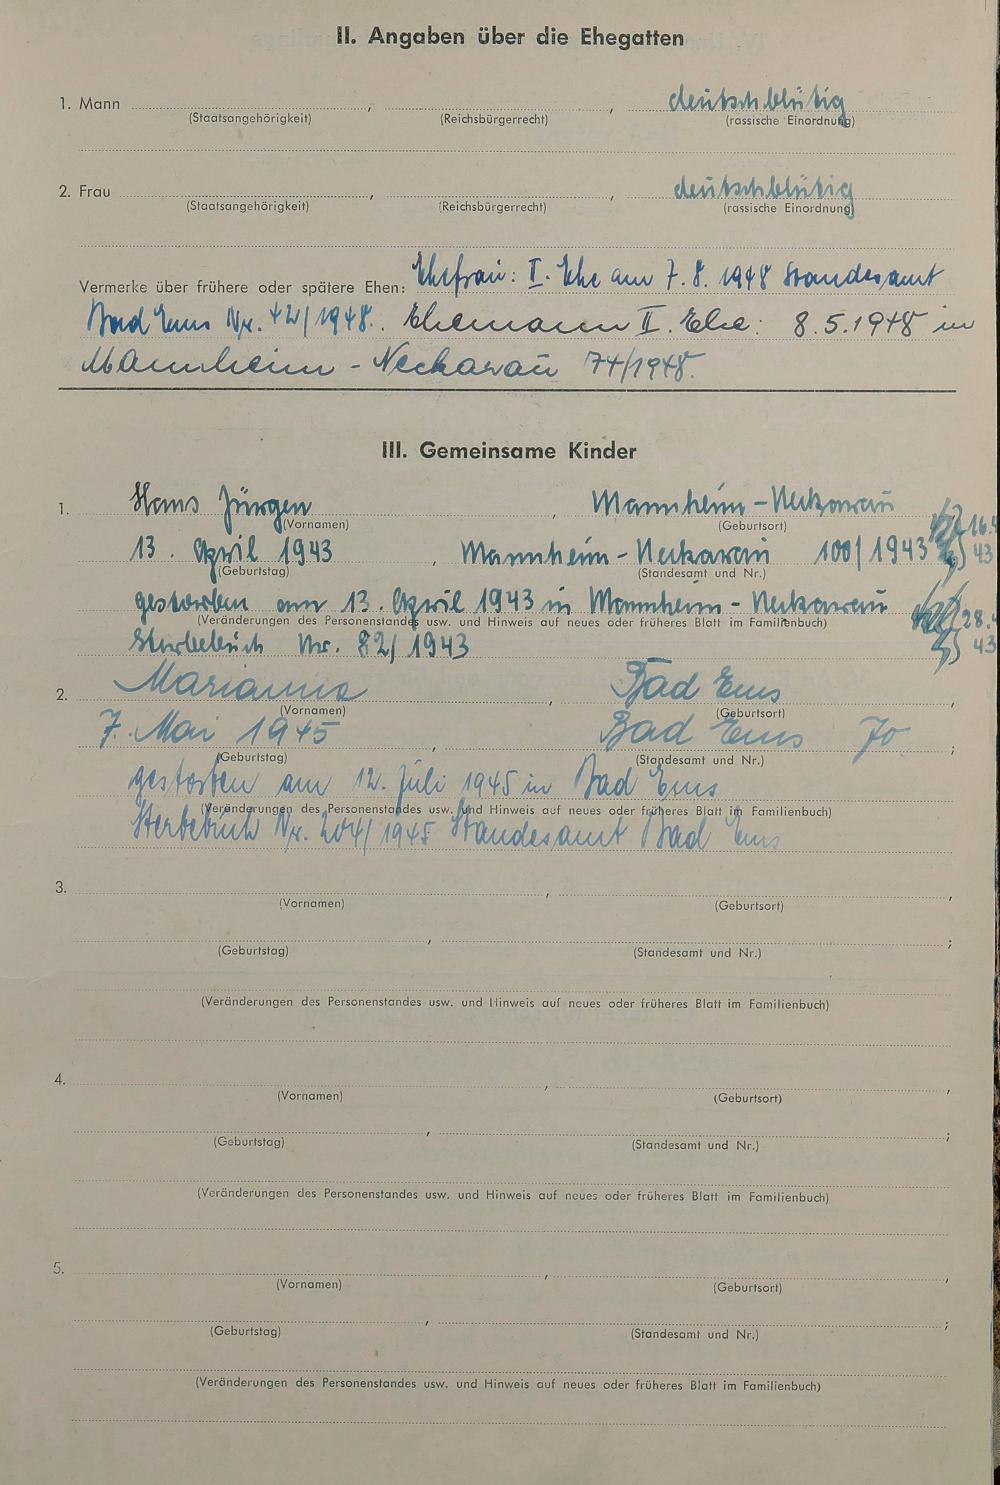 II. Angaben über die Ehegatten
1. Mann , , deutschblütig
(Staatsangehörigkeit) (Reichsbürgerrecht) (rassische Einordnung)
2. Frau , , deutschblütig
(Staatsangehörigkeit) (Reichsbürgerrecht) (rassische Einordnung)
Vermerke über frühere oder spätere Ehen: Ehefrau: I. Ehe am 7.8.1948 Standesamt
Bad Ems Nr. 42/1948. Ehemann II. Ehe: 8.5.1948 in
Mannheim - Neckarau 74/1948.
III. Gemeinsame Kinder
1. Hans Jürgen , Mannheim - Neckarau
(Vornamen) (Geburtsort)
13. April 1943 , Mannheim - Neckarau 100/1943 16.4
(Geburtstag) (Standesamt und Nr.) 43
gestorben am 13. April 1943 in Mannheim - Neckarau 28.4
(Veränderungen des Personenstandes usw. und Hinweis auf neues oder früheres Blatt im Familienbuch)
Sterbebuch Nr. 82/1943 43
2. Marianne , Bad Ems ,
(Vornamen) (Geburtsort)
7. Mai 1945 , Bad Ems 70 ;
(Geburtstag) (Standesamt und Nr.)
gestorben am 12. Juli 1945 in Bad Ems
(Veränderungen des Personenstandes usw. und Hinweis auf neues oder früheres Blatt im Familienbuch)
Sterbebuch Nr. 204/1945 Standesamt Bad Ems
3. , ,
(Vornamen) (Geburtsort)
, ;
(Geburtstag) (Standesamt und Nr.)
(Veränderungen des Personenstandes usw. und Hinweis auf neues oder früheres Blatt im Familienbuch)
4. , ,
(Vornamen) (Geburtsort)
, ;
(Geburtstag) (Standesamt und Nr.)
(Veränderungen des Personenstandes usw. und Hinweis auf neues oder früheres Blatt im Familienbuch)
5. , ,
(Vornamen) (Geburtsort)
, ;
(Geburtstag) (Standesamt und Nr.)
(Veränderungen des Personenstandes usw. und Hinweis auf neues oder früheres Blatt im Familienbuch)